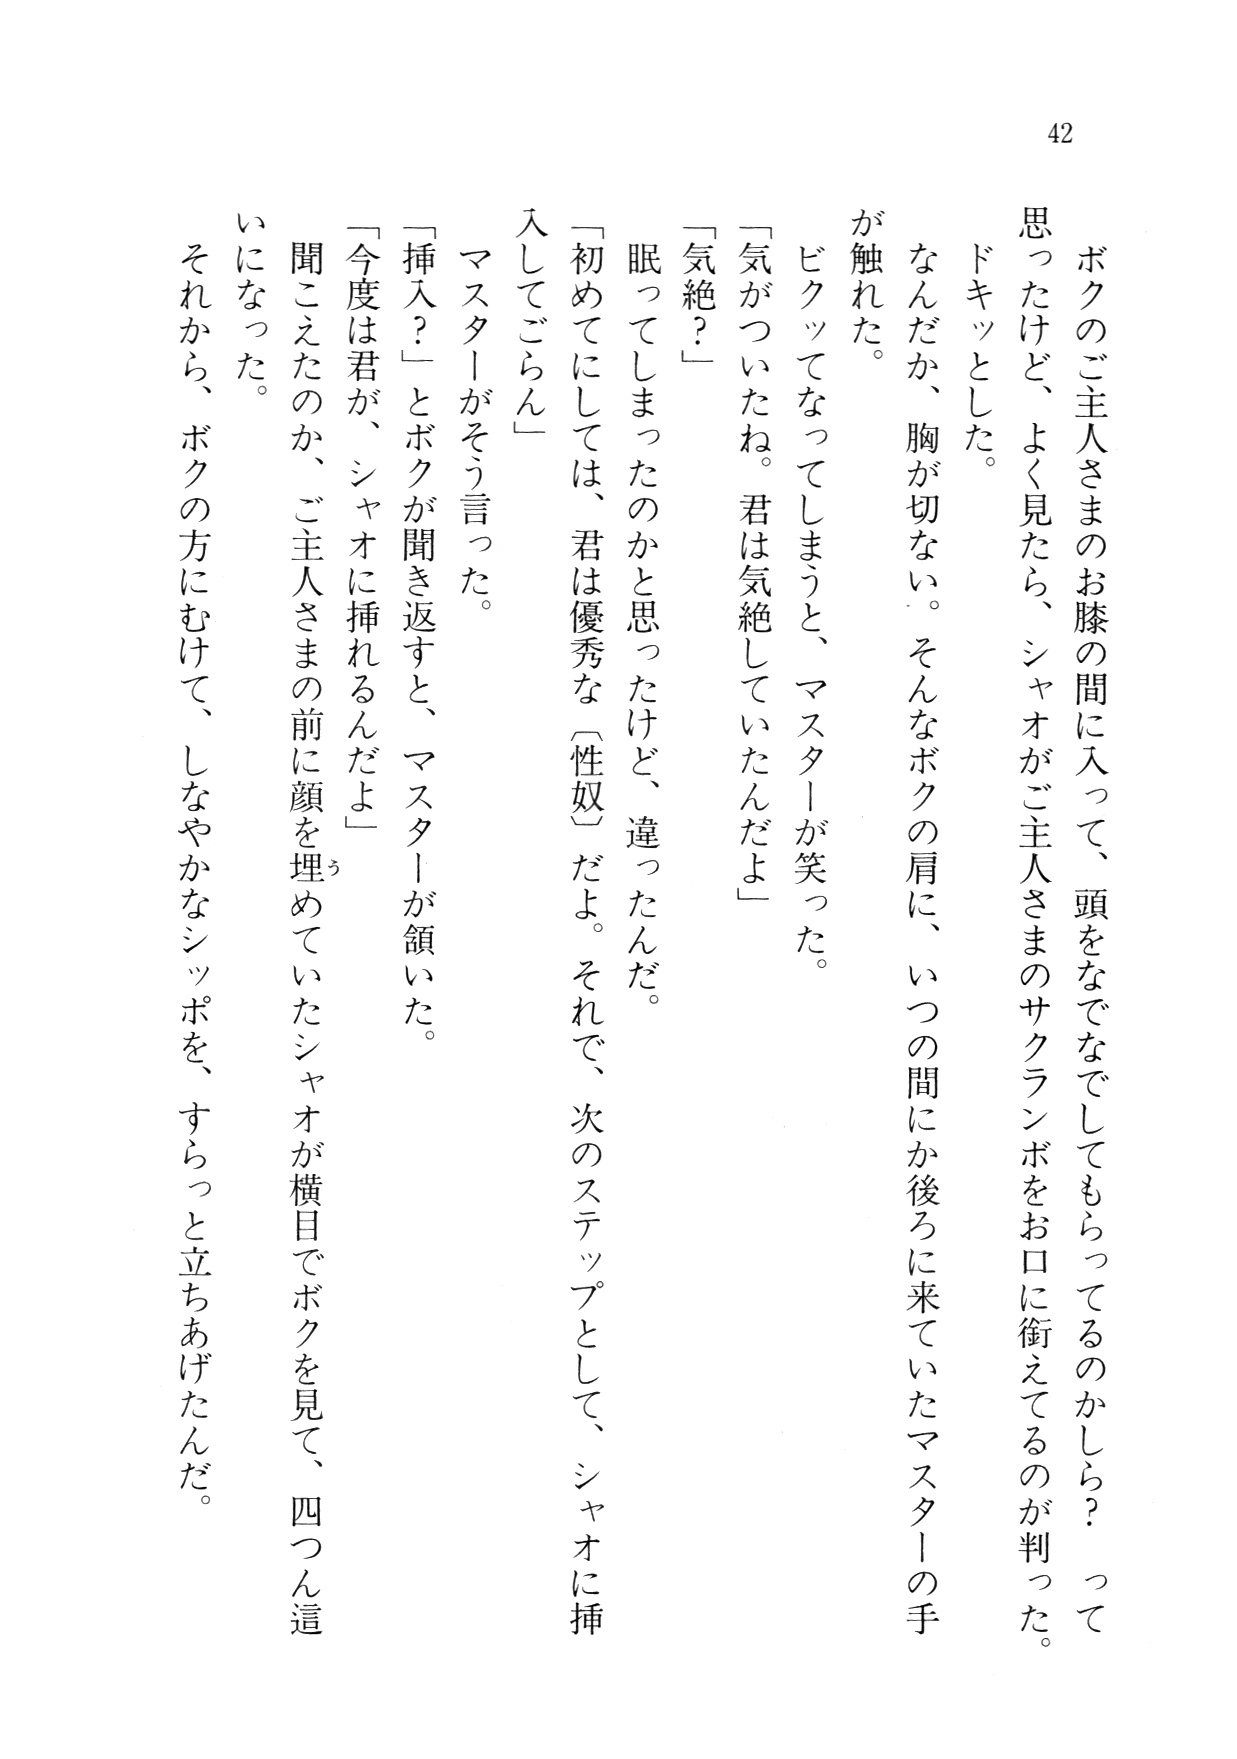 42
ボクのご主人さまのお膝の間に入って、頭をなでなでしてもらってるのかしら？　って
思ったけど、よく見たら、シャオがご主人さまのサクランボをお口に銜えてるのが判った。
ドキッとした。
なんだか、胸が切ない。そんなボクの肩に、いつの間にか後ろに来ていたマスターの手
が触れた。
ビクッてなってしまうと、マスターが笑った。
「気がついたね。君は気絶していたんだよ」
「気絶？」
眠ってしまったのかと思ったけど、違ったんだ。
「初めてにしては、君は優秀な〔性奴〕だよ。それで、次のステップとして、シャオに挿
入してごらん」
マスターがそう言った。
「挿入？」とボクが聞き返すと、マスターが頷いた。
「今度は君が、シャオに挿れるんだよ」
聞こえたのか、ご主人さまの前に顔を埋めていたシャオが横目でボクを見て、四つん這
いになった。
それから、ボクの方にむけて、しなやかなシッポを、すらっと立ちあげたんだ。